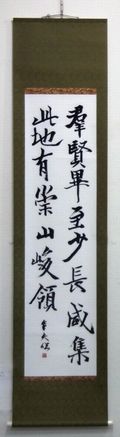 羣賢畢至少長咸集
此地有崇山峻領